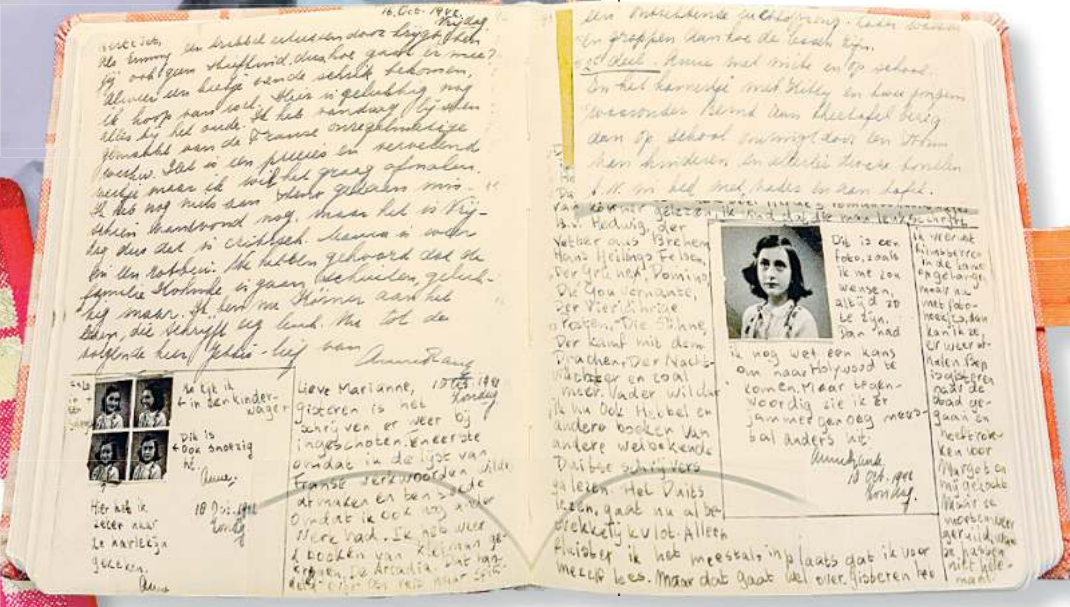 16. Oct. 1942.
Vrijdag
Beste Jet,
ik hoop van wel. Hier is gelukkig nog
alles bij het oude. Ik heb vandaag lijsten
gemaakt van de Franse onregelmatige
werkw. Het is een precies en vervelend
werkje maar ik wil het graag afmaken.
Ik heb nog niets aan steno gedaan mis-
schien vanavond nog, maar het is Vrij-
dag dus dat is critisch. Mama is weer
We hebben gehoord dat de
familie is gaan scheiden, geluk-
kig maar. Ik ben nu Körner aan het
lezen, die schrijft erg leuk. Nu tot de
volgende keer, Jettie-lief van
Anne Frank
kijk ik
in den kinder-
wagen
Dit is
ook snoezig
hè.
Anne.
Hier heb ik 18 Oct. 1942
zeker naar Zondag
de harlekijn
gekeken.
Anne
Lieve Marianne, 18 Oct. 1942
Zondag
gisteren is het
schrijven er weer bij
ingeschoten. Eneerste
omdat ik de lijst van
Franse werkwoorden wilde
afmaken en ten 2de
omdat ik ook nog ander
werk had. Ik heb weer
2 boeken van Kleiman ge-
kregen. De Arcadia. Dat han-
delt over een reis naar
en grappen aan hoe de lessen zijn.
2e deel. Anne met
en op school.
En het kamertje met en twee jongens
waaronder aan theetafel bezig
dan op school omringd door een drom
van kinderen en allerlei
b.v. in bed met en aan tafel.
van Körner gelezen, ik vind dat die man leuk schrijft.
B.v. Hedwig, der
Vetter aus Bremen,
Hans Heilings Felsen,
Der Grüne Domino,
Die Gouvernante,
Der Vierjährige
Posten, Die Sühne,
Der Kampf mit dem
Drachen, Der Nacht-
wächter en zoal
meer. Vader wil dat
ik nu ook Hebbel en
andere boeken van
andere welbekende
Duitse schrijvers
ga lezen. Het Duits
lezen gaat nu al be-
trekkelijk vlot. Alleen
fluister ik het meestal, in plaats dat ik voor
mezelf lees. Maar dat gaat wel over, gisteren heb
Dit is een
foto, zoals
ik me zou
wensen,
altijd zo
te zijn.
Dan had
ik nog wel een kans
om naar Holywood te
komen. Maar tegen-
woordig zie ik er
jammer genoeg mees-
tal anders uit.
Annefrank
18 Oct. 1942
Zondag.
ik vooruit
filmsterren
in de kamer
opgehangen,
maar nu
met foto-
hoekjes, dan
kan ik ze
er weer af-
halen. Bep
is gisteren
naar de
stad ge-
gaan en
heeft rok-
ken voor
Margot en
mij gekocht.
Maar ze
moeten weer
geruild, want
ze hebben
niet hele-
maal